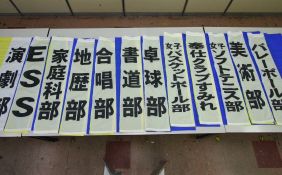 バレーボール部
美術部
女子ソフトテニス部
奉仕クラブすみれ
女子バスケットボール部
卓球部
書道部
合唱部
地歴部
家庭科部
ESS
演劇部